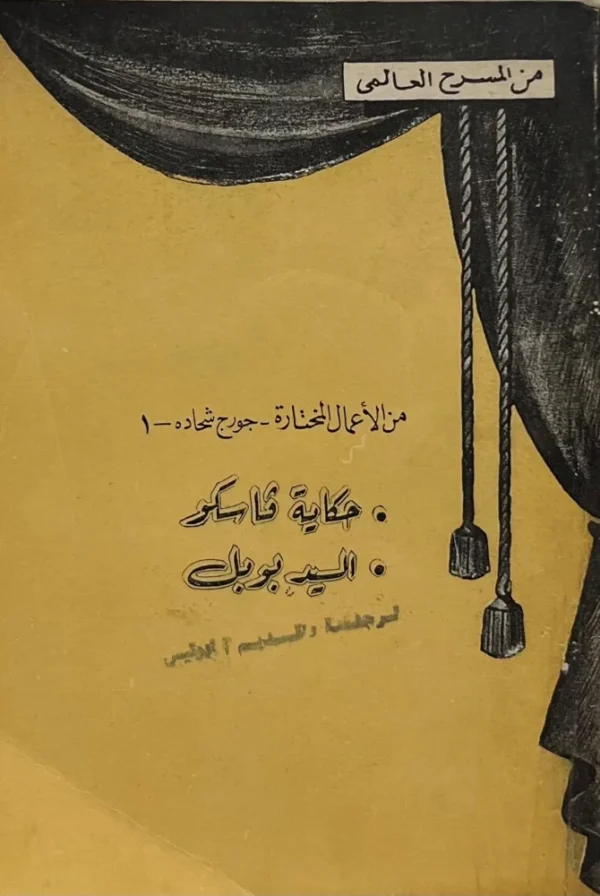 من المسرح العالمى
من الأعمال المختارة - جورج شحاده - ١
• حكاية ڤاسكو
• السيد بوبل